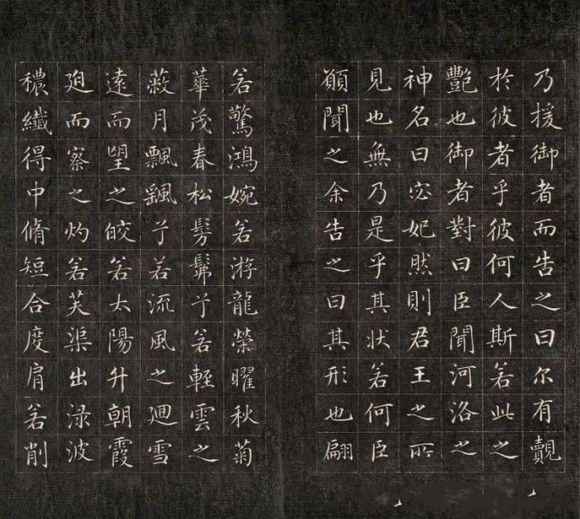 乃援御者而告之曰尔有覿
於彼者乎彼何人斯若此之
豔也御者對曰臣聞河洛之
神名曰宓妃然則君王之所
見也無乃是乎其狀若何臣
願聞之余告之曰其形也翩
若驚鴻婉若游龍榮曜秋菊
華茂春松髣髴兮若輕雲之
蔽月飄飖兮若流風之廻雪
遠而望之皎若太陽升朝霞
廹而察之灼若芙渠出淥波
穠纖得中脩短合度肩若削